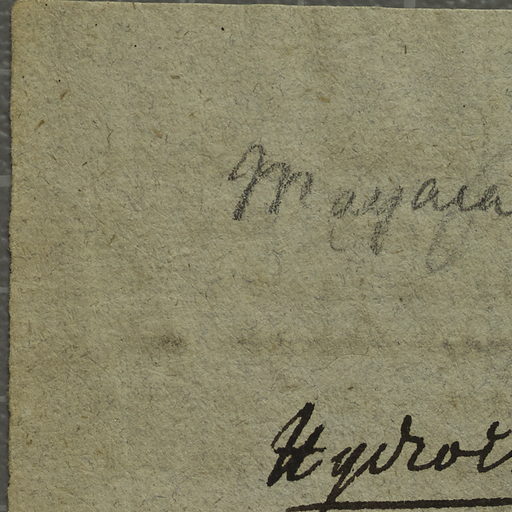 Mayaca
Hydroc